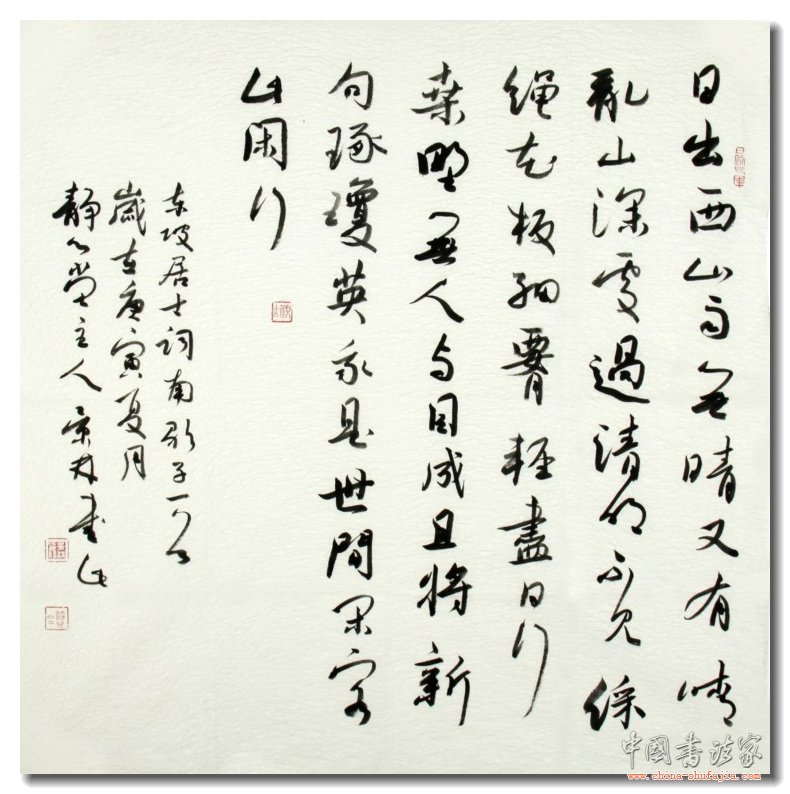 日出西山雨無晴又有晴
亂山深處過清明不見綵
繩花板細腰輕盡日行
桑野無人与目成且將新
句琢瓊英我是世間閑客
此閑行
東坡居士詞南歌子一首
歲在庚寅夏月
靜心堂主人書
中國書法家
www.china-shufajia.com